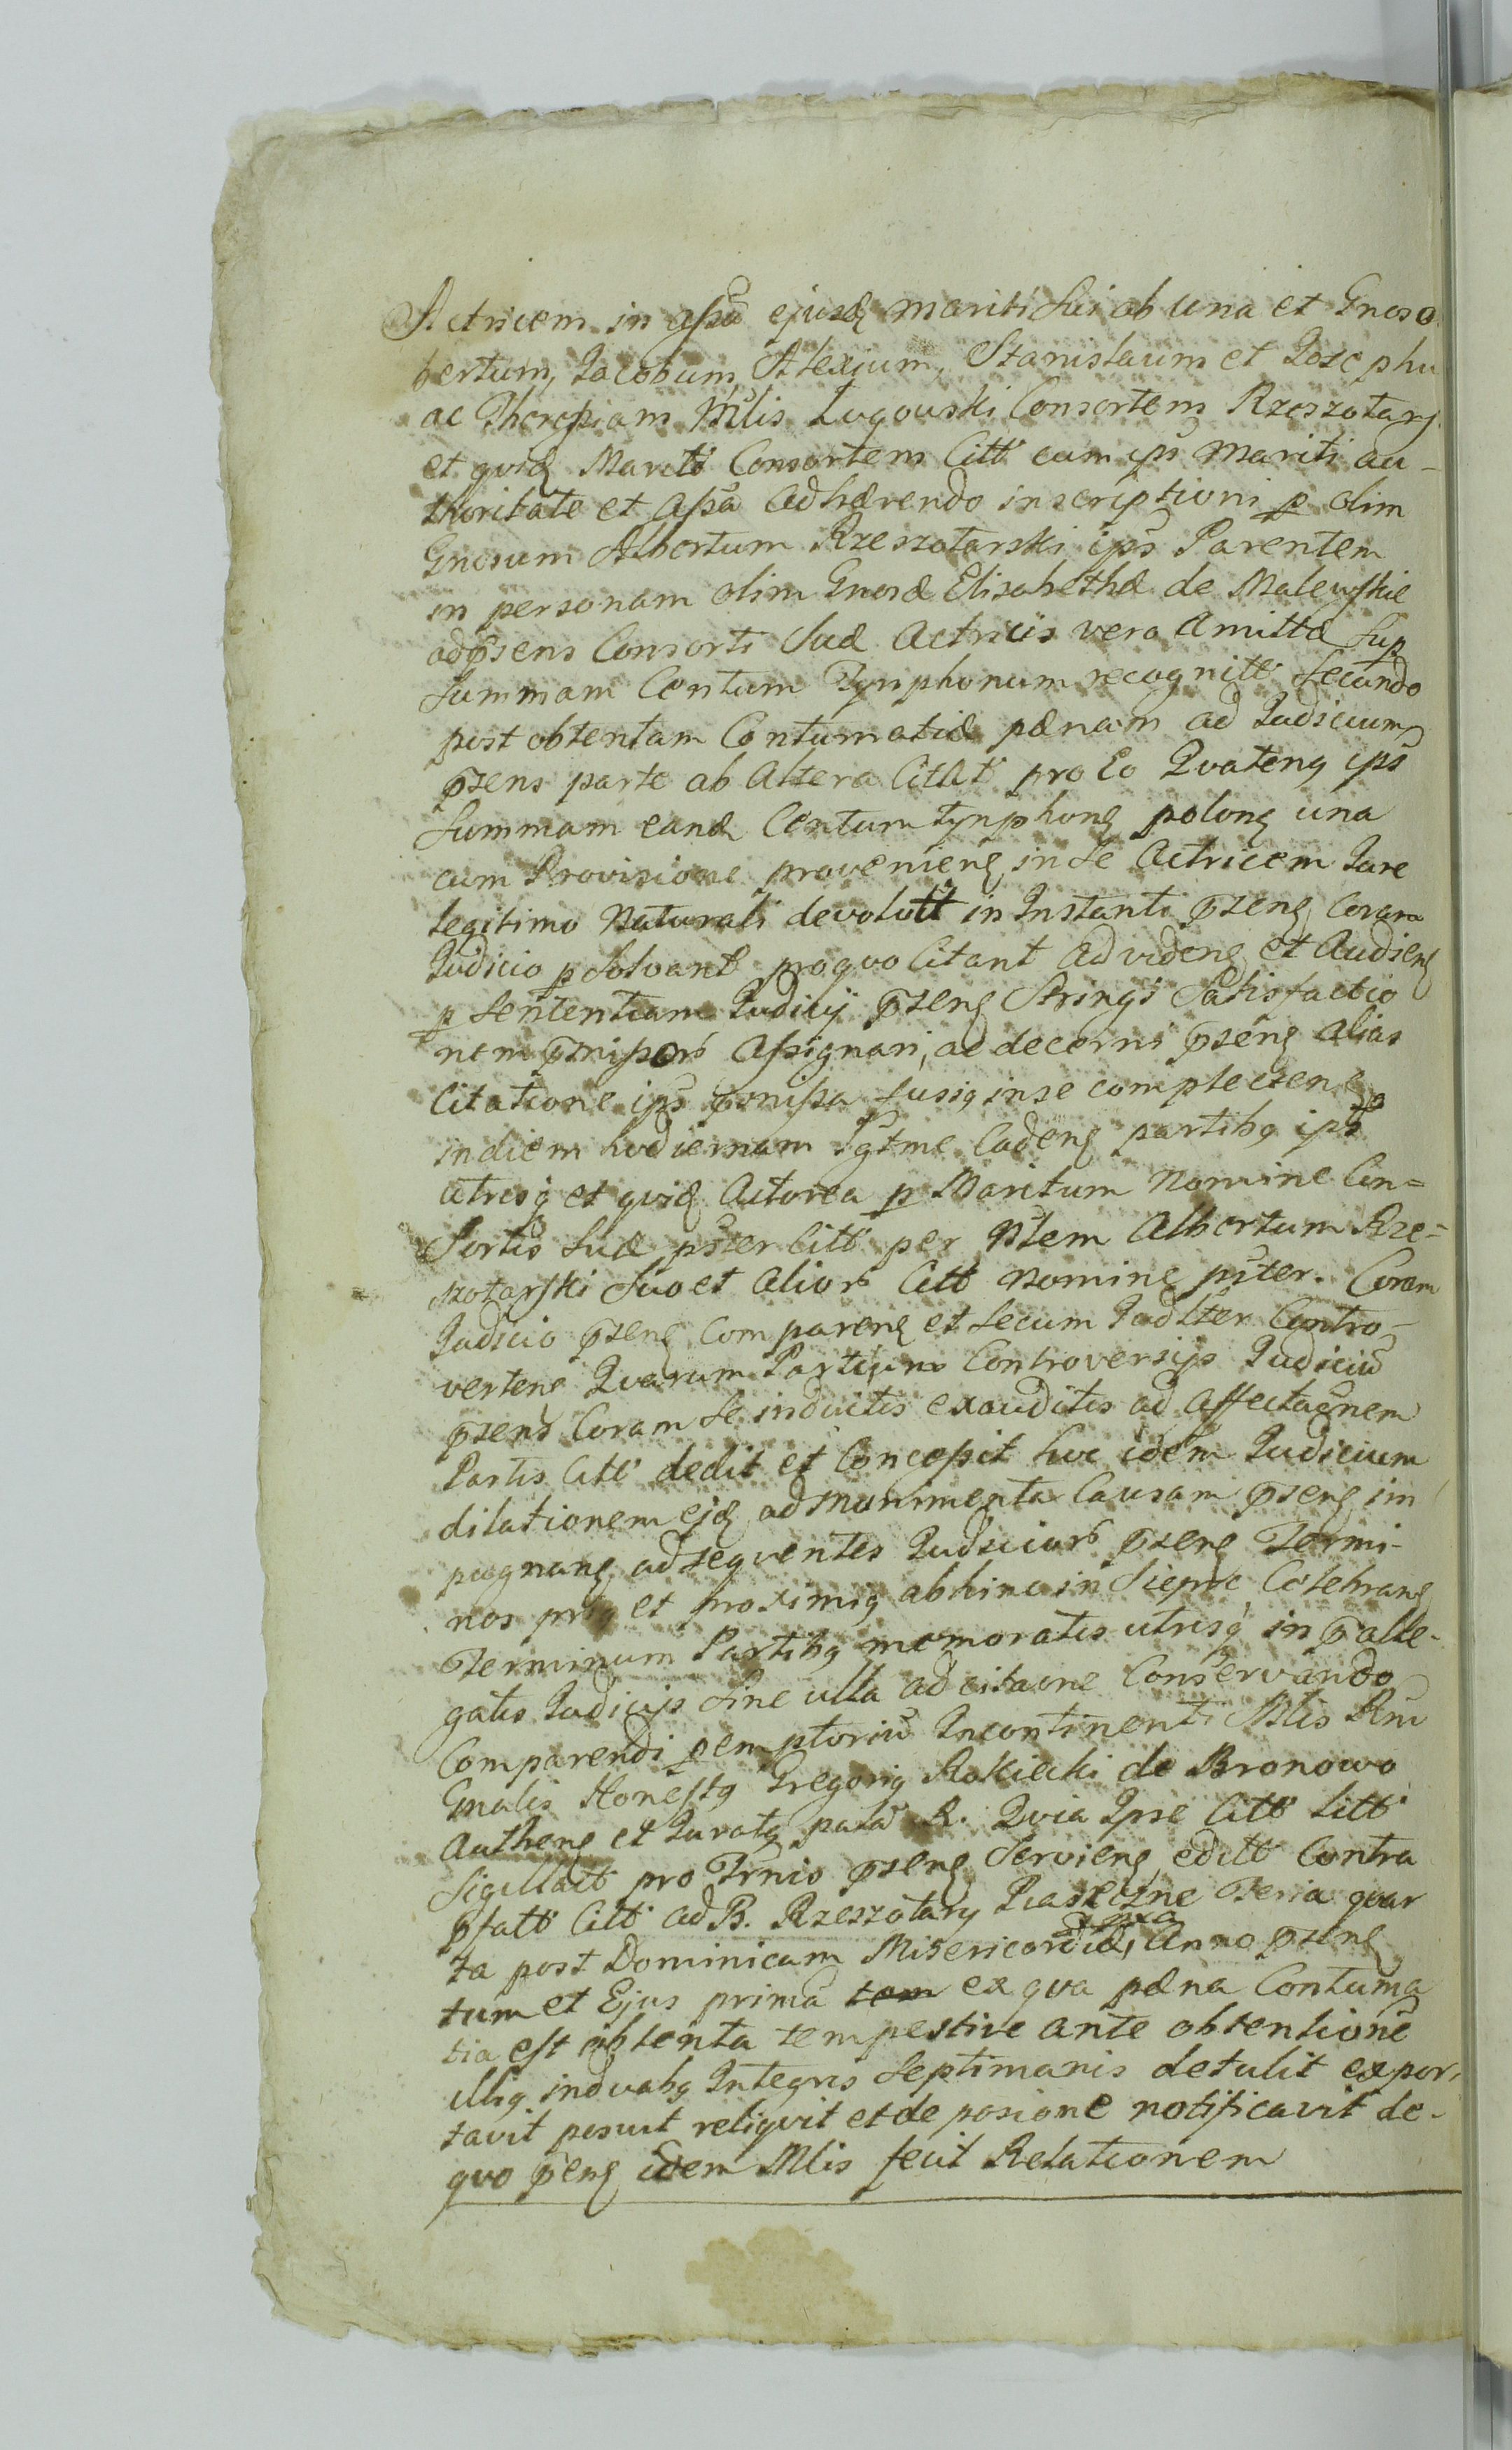 Actricem in assa ejusd mariti sui ab una et Gnoso
bertum, Jacobum, Alexium, Stanislaum et Josephu
ac Theresiam Nblis Lugowski Consortem Rzeszotary
et quid Mariti Consortem Citt cum ips mariti au-
thoritate et assa adhærendo inscriptioni p olim
Gnosum Albertum Rzeszotarski ips Parentem
in personam olim Gnosæ Elisabethæ de Malewskie
adpsens Consorti suæ Actricis vero Amittæ sup
summam Centum Tynphonum recognitt secundo
post obtentam Contumatiæ pænam ad Judicium
psens parte ab Altera Citat pro Eo Quateng ips
summam eand Centum tynphong polong una
cum Provisione proveniens in se Actricem Jure
legitimo Naturali devolutt in Instanti psens Coram
Judicio psolvant proquo Citant Ad videns et Audiens
p sententiam Judicij psens stringi satisfactio
nem pmissors assignari, ac decerni psens alias
Citatione ips pmissa fusig inse complectens
in diem hodiernam lgtme Cadens partibg ips
utrisq et quid Actorea p Maritum Nomine Con=
sortis suæ pster Citt per Nblem Albertum Rze-
szotarski suo et alior Citt nomine pster. Coram
Judicio psens Comparens et secum Jadlter Contro-
vertens Quarum Partium Controversijs Judiciu
psens Coram se inductis exauditis ad affectaonem
Partis Citt dedit et Concessit huc idem Judicium
dilationem ejd ad munimenta Causam psens im
pugnang ad sequentes Judiciors psens Termi-
nos prig et proximig abhinc in Sieprc Celebrang
Terminum Partibg memoratis utrisq in palle-
gatis Judicijs sine ulla adcitaone Conservando
Comparendi pemptoriu Incontinenti Mlis Rni
Gnalis Honestg Gregorig Rokicki de Bronowo
Autheng et Juratg palã R. Quia Ipse Citt litt
sigillatt pro Trnis psens serviens editt Contra
pfatt Citt ad B. Rzeszotary Piaseczne Feria quar
ta post Dominicam Misericordiæ, Anno psens
tum et Ejus prima ex qua pæna Contuma
tia est obtenta tempestive ante obtentione
illig induabg Integris septimanis detulit expor-
tavit posuit reliquit et de posione notificavit de-
quo psens idem Mlis fecit Relationem